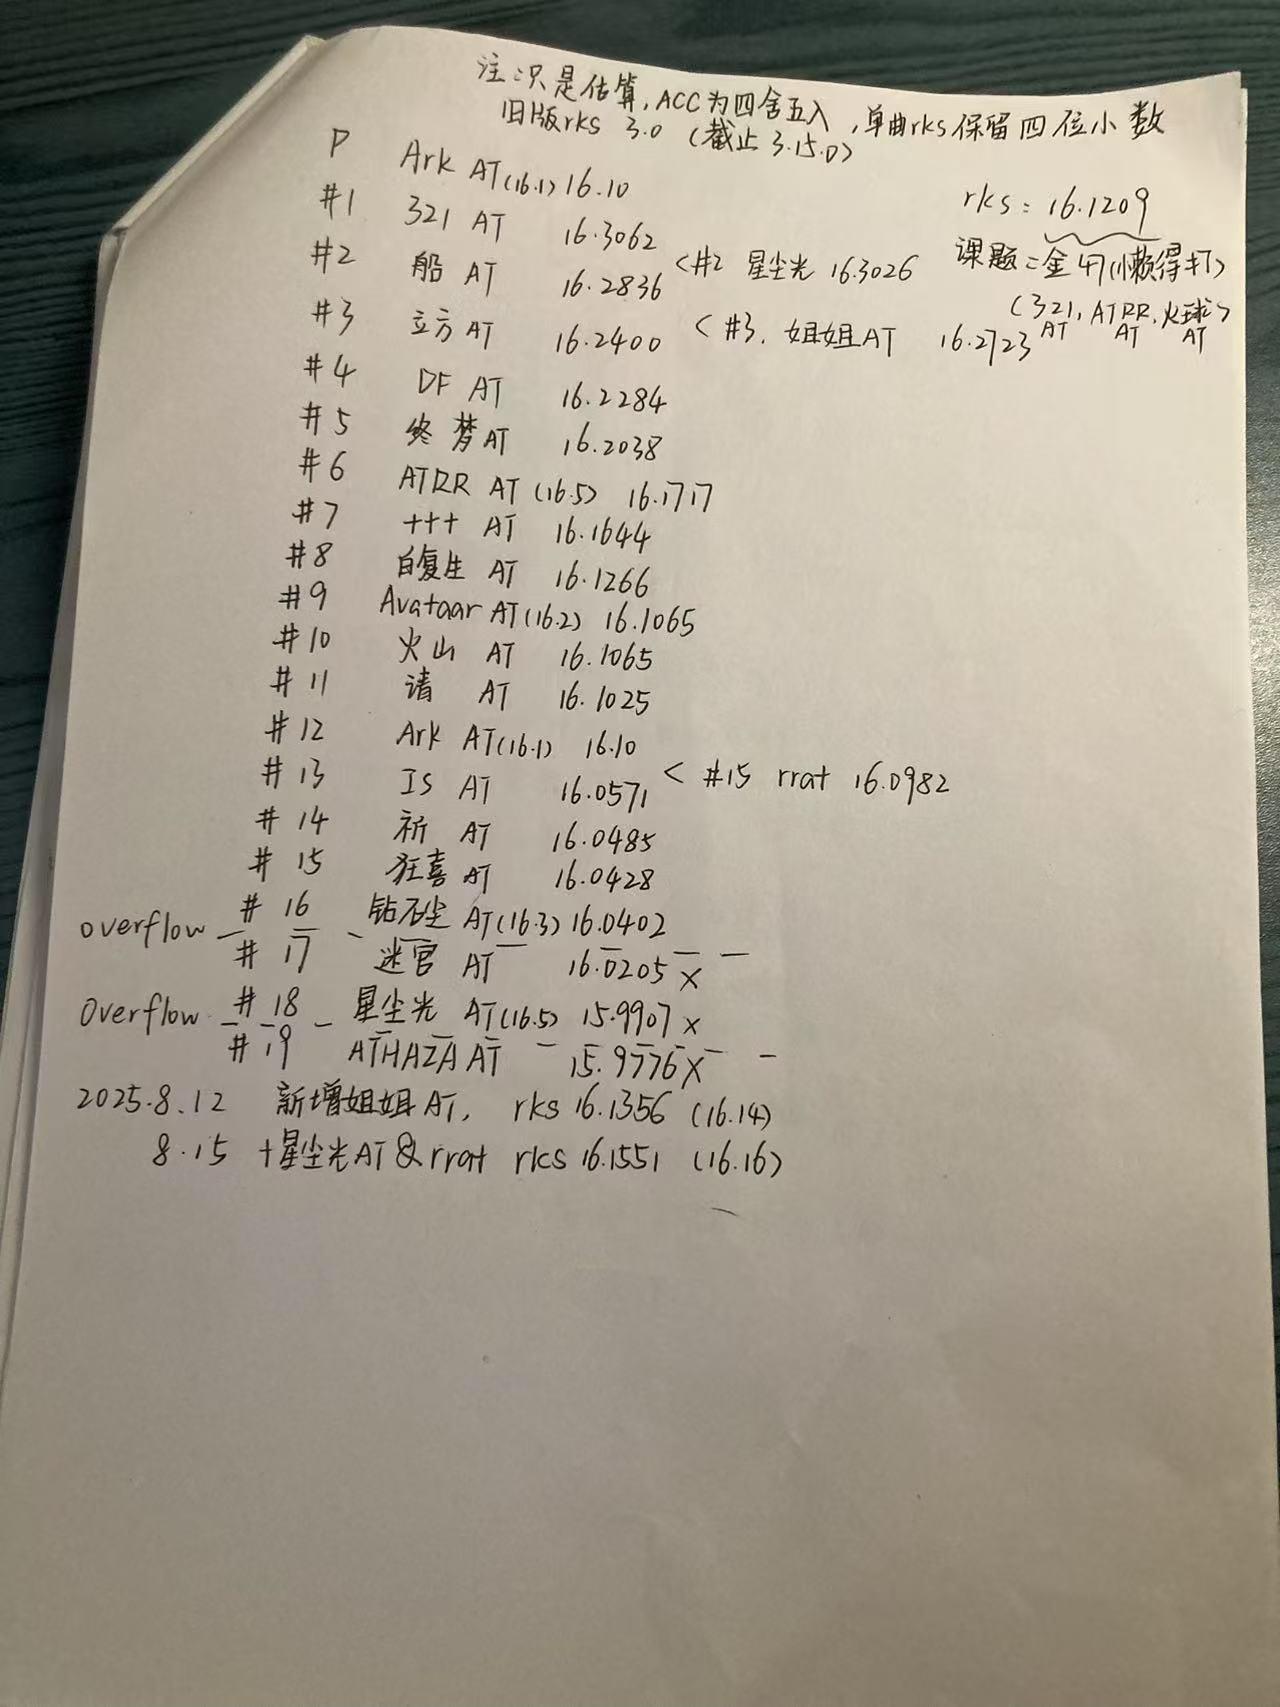 注:只是估算,ACC为四舍五入,单曲rks保留四位小数
旧版rks 3.0 (截止3.15.0)
P Ark AT(16.1) 16.10
rks: 16.1209
#1 321 AT 16.3062
课题:金47(懒得打)
#2 船 AT 16.2836 <#2 星尘光 16.3026
(321, ATRR, 火球)
AT AT AT
#3 立方 AT 16.2400 < #3. 姐姐AT 16.2723
#4 DF AT 16.2284
#5 终梦AT 16.2038
#6 ATRR AT (16.5) 16.1717
#7 +++ AT 16.1644
#8 自复生 AT 16.1266
#9 Avataar AT(16.2) 16.1065
#10 火山 AT 16.1065
#11 请 AT 16.1025
#12 Ark AT(16.1) 16.10
#13 IS AT 16.0571 < #15 rrat 16.0982
#14 祈 AT 16.0485
#15 狂喜 AT 16.0428
#16 钻石尘 AT(16.3) 16.0402
overflow
#17 迷宫 AT 16.0205 x
#18 星尘光 AT(16.5) 15.9907 x
Overflow
#19 ATHAZA AT 15.9776 X
2025.8.12 新增姐姐AT, rks 16.1356 (16.14)
8.15 +星尘光AT&rrat rks 16.1551 (16.16)